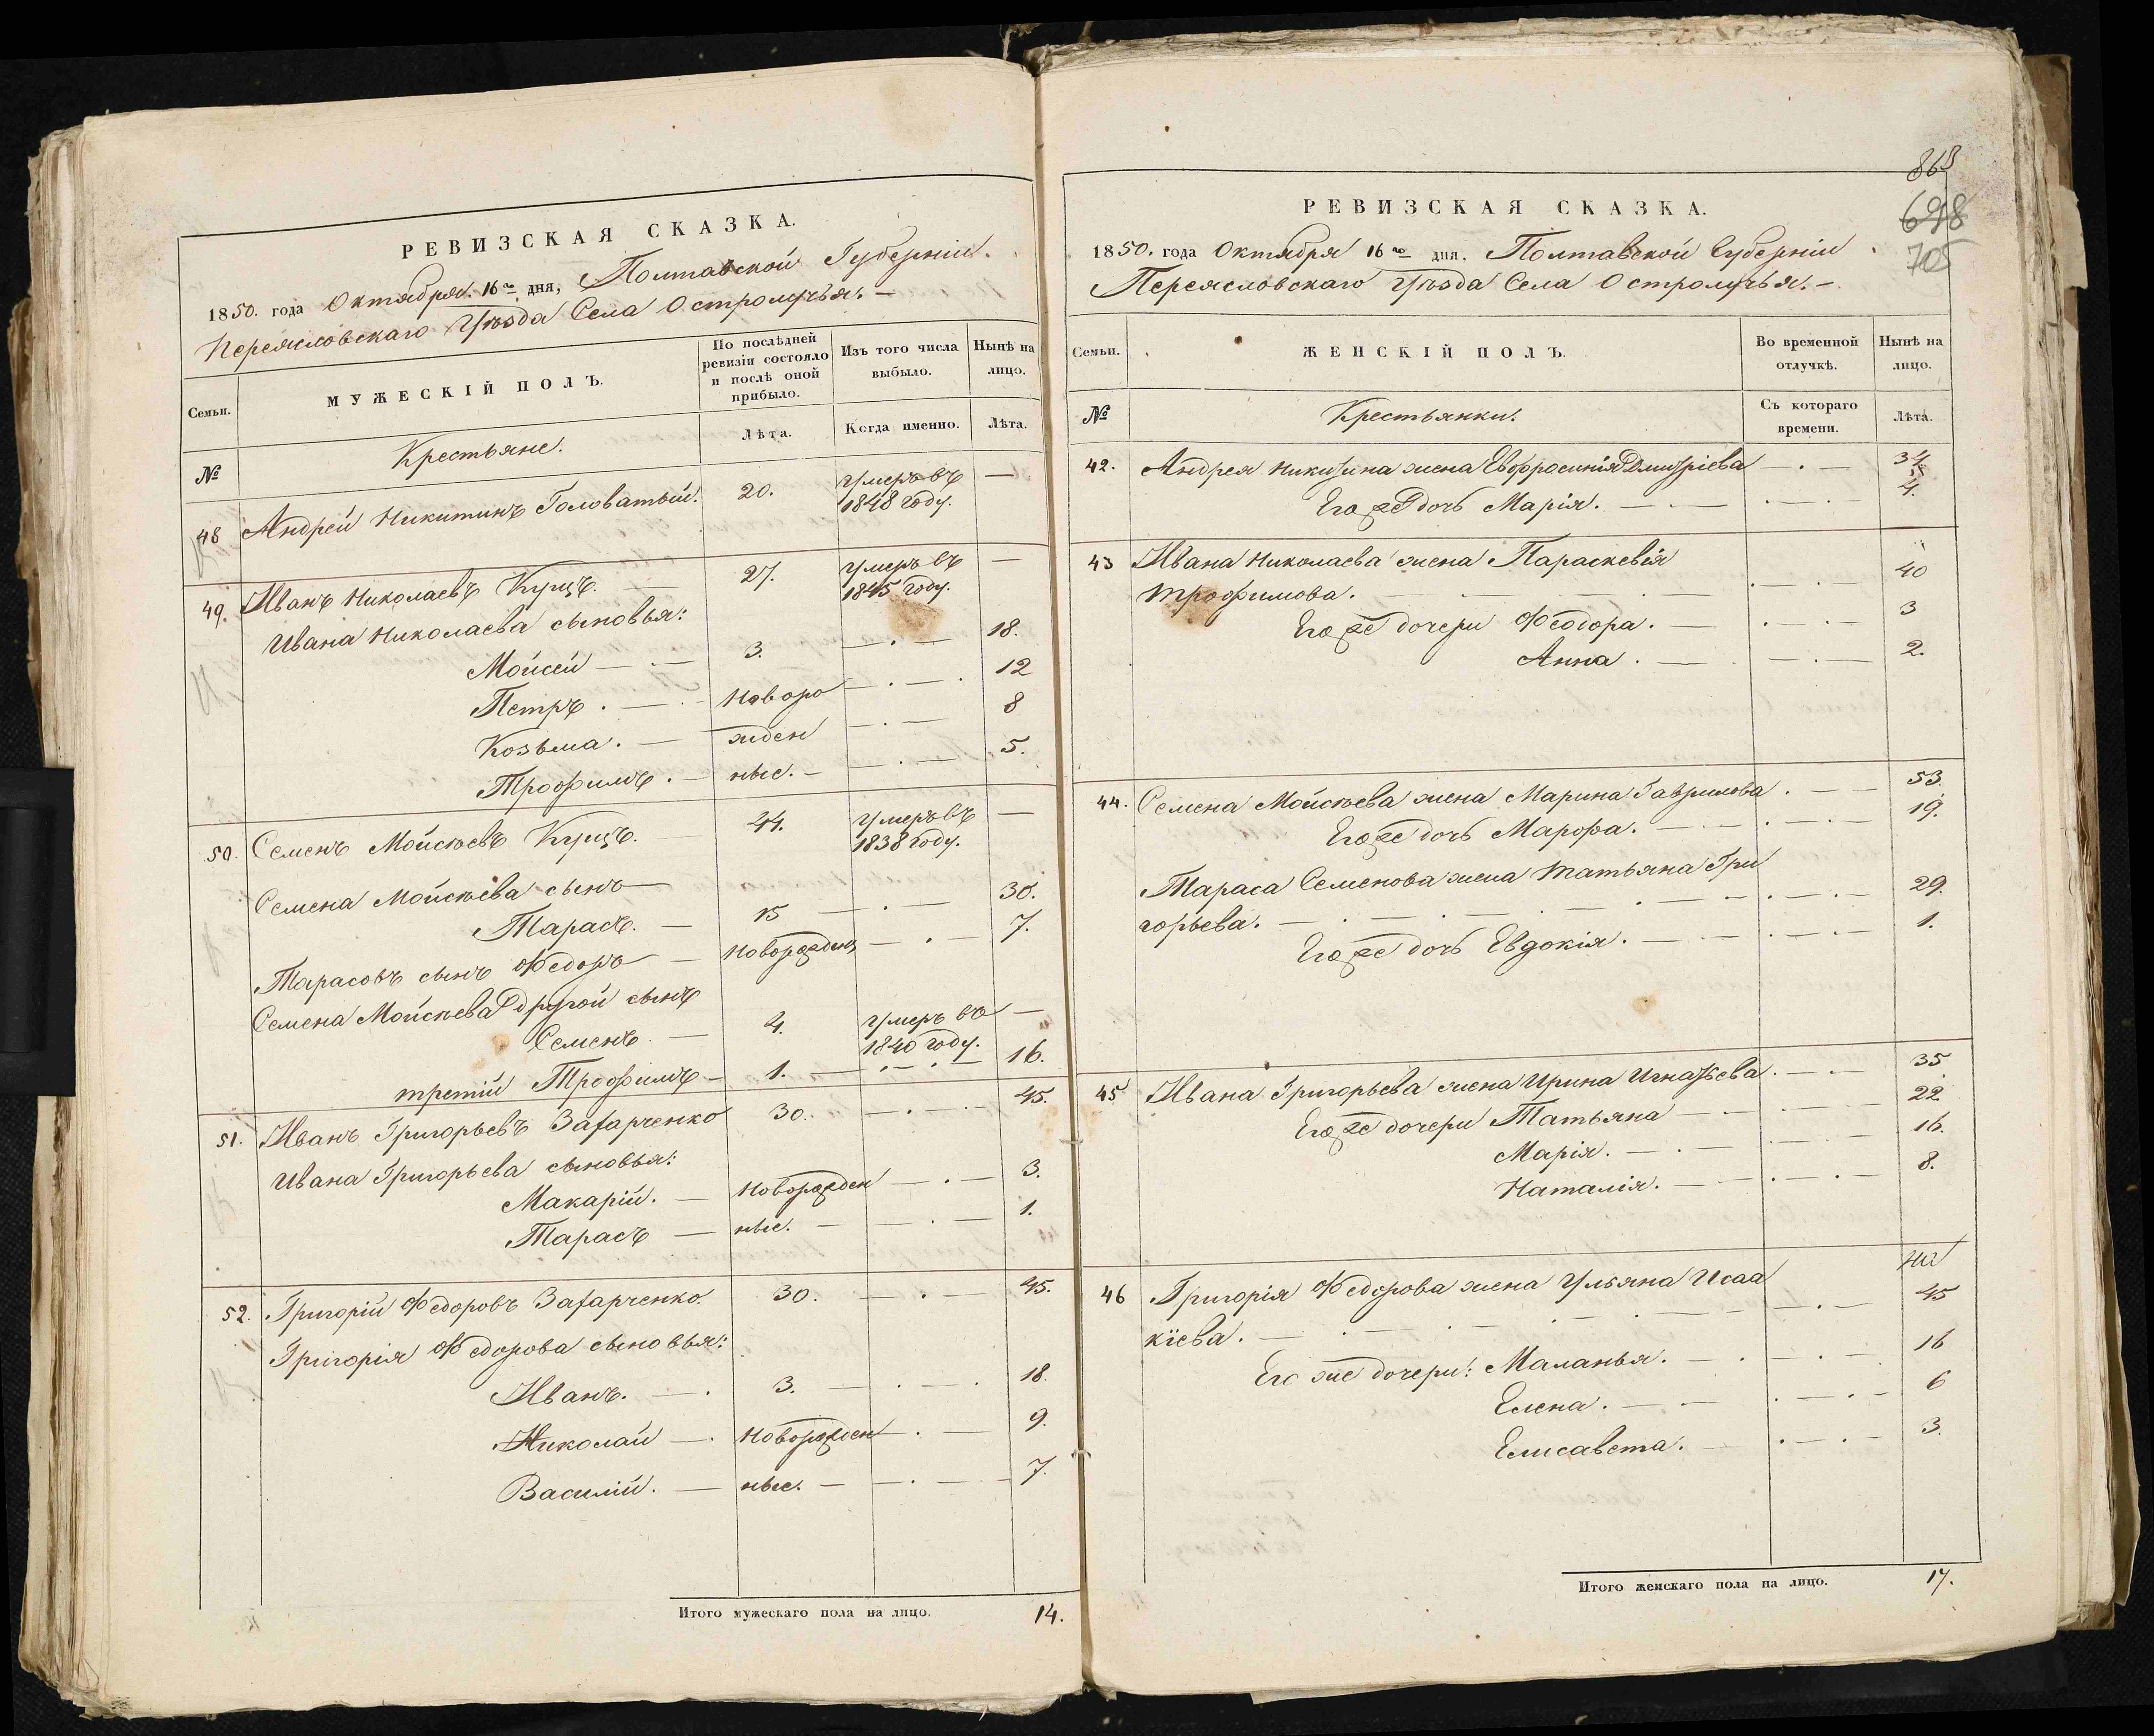 РЕВИЗСКАЯ СКАЗКА.
1850. года Октября 16го дня, Полтавской Губерніи
Переясловскаго Уѣзда Села Остролучья. —
Семьи.
МУЖЕСКІЙ ПОЛЪ.
По послѣдней
ревизіи состояло
и послѣ оной
прибыло.
Изъ того числа
выбыло.
Нынѣ на
лицо.
№
Крестьяне.
Лѣта.
Когда именно.
Лѣта.
48 Андрей Никитинъ Головатый. 20. умеръ въ —
1848 году.
49. Иванъ Николаевъ Куцъ. 27. умеръ въ —
1845 году.
Ивана Николаева сыновья:
Мойсей — 3. — 18.
Петръ. — Новоро — 12
Козьма. — жден — 8
Трофимъ. — ные. — 5.
50. Семенъ Мойсѣевъ Куцъ. 44. умеръ въ —
1838 году.
Семена Мойсѣева сынъ
Тарасъ. — 15 — 30.
Тарасовъ сынъ Федоръ — Новорожденъ — 7.
Семена Мойсѣева другой сынъ
Семенъ. — 4. умеръ въ —
1840 году.
третій Трофимъ — 1. — 16.
51. Иванъ Григорьевъ Захарченко 30. — 45.
Ивана Григорьева сыновья:
Макарій. — Новорожден — 3.
Тарасъ — ные. — 1.
52. Григорій Федоровъ Захарченко. 30. — 45.
Григорія Федорова сыновья:
Иванъ. — 3. — 18.
Николай — Новорожден — 9.
Василій. — ные. — 7.
Итого мужескаго пола на лицо. 14.
868
698
705
РЕВИЗСКАЯ СКАЗКА.
1850. года Октября 16го дня, Полтавской Губерніи
Переясловскаго Уѣзда Села Остролучья. —
Семьи.
ЖЕНСКІЙ ПОЛЪ.
Во временной
отлучкѣ.
Нынѣ на
лицо.
№
Крестьянки.
Съ котораго
времени.
Лѣта.
42. Андрея Никитина жена Евфросинія Дмитріева — 34.
Его же дочь Марія. — 4.
43 Ивана Николаева жена Параскевія
Трофимова. — 40
Его же дочери Феодора. — 3
Анна. — 2.
44. Семена Мойсѣева жена Марина Гаврилова. — 53.
Его же дочь Марфа. — 19.
Тараса Семенова жена Татьяна Гри
горьева. — 29.
Его же дочь Евдокія. — 1.
45 Ивана Григорьева жена Ирина Игнатьева. — 35
Его же дочери Татьяна — 22
Марія. — 16.
Наталія. — 8.
46 Григорія Федорова жена Ульяна Исаа
кіева. — 45
Его же дочери: Маланья. — 16
Елена. — 6
Елисавета. — 3.
Итого женскаго пола на лицо. 17.